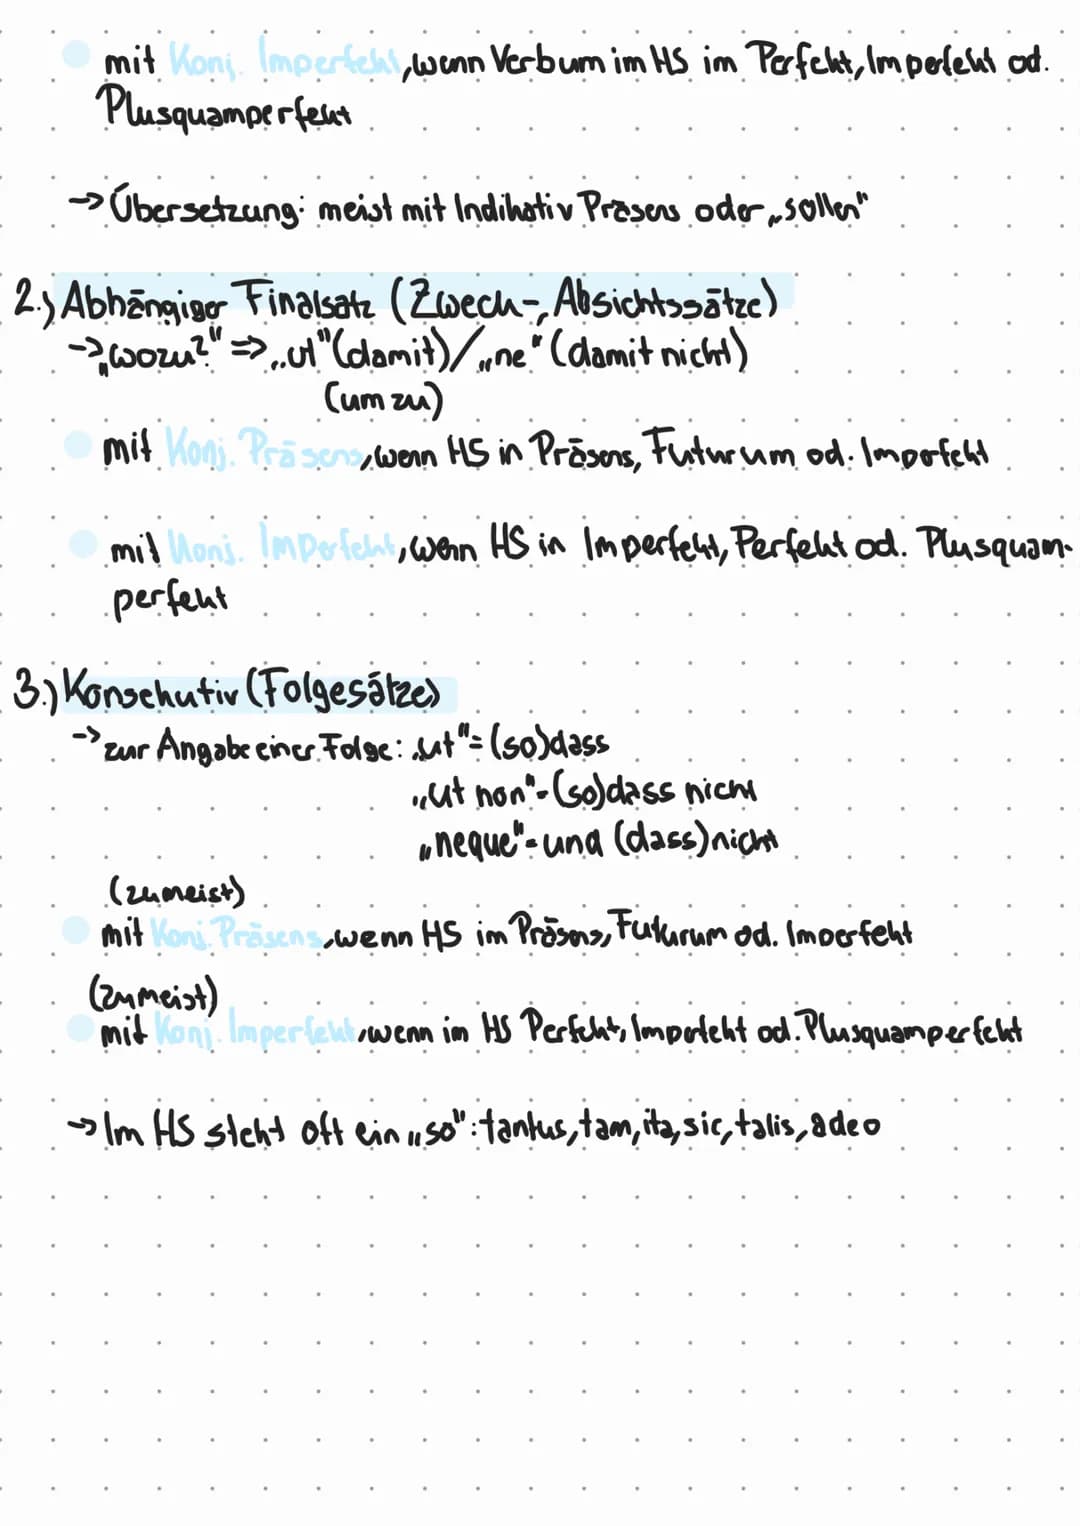 mit Konj. Imperfekt, wenn Verbum im HS im Perfekt, Imperfekt od.
Plusquamperfekt
-> Übersetzung: meist mit Indikativ Präsens oder „sollen"
2.) Abhängiger Finalsatz (Zweck-, Absichtssätze)
-> „wozu?" => „ut" (damit) / „ne" (damit nicht)
(um zu)
mit Konj. Präsens, wenn HS in Präsens, Futurum od. Imperfekt
mit Konj. Imperfekt, wenn HS in Imperfekt, Perfekt od. Plusquam-
perfekt
3.) Konsekutiv (Folgesätze)
-> zur Angabe einer Folge: „ut" = (so)dass
„ut non" - (so)dass nicht
„neque" = und (dass) nicht
(zumeist)
mit Konj. Präsens, wenn HS im Präsens, Futurum od. Imperfekt
(zumeist)
mit Konj. Imperfekt, wenn im HS Perfekt, Imperfekt od. Plusquamperfekt
-> Im HS steht oft ein „so": tantus, tam, ita, sic, talis, adeo